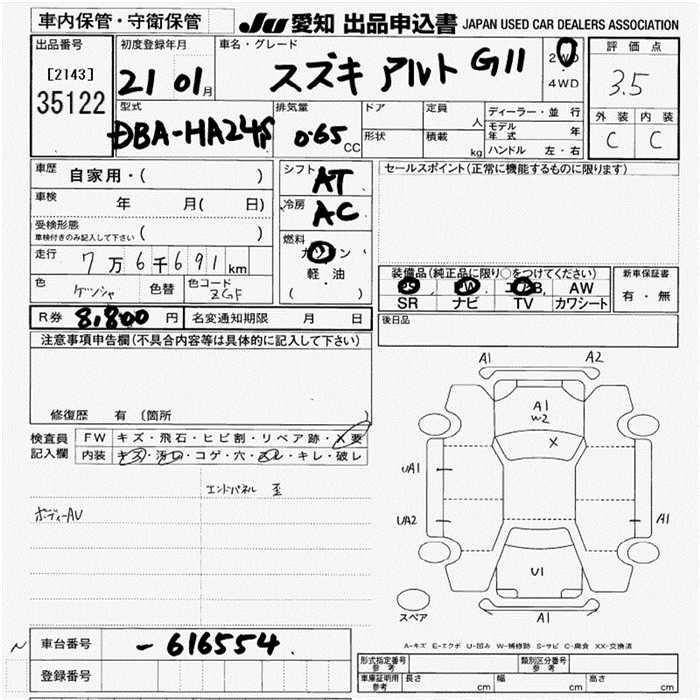 車内保管・守衛保管
JU 愛知 出品申込書 JAPAN USED CAR DEALERS ASSOCIATION
出品番号
[2143]
35122
初度登録年月
21 01月
車名・グレード
スズキ アルト GⅡ
2WD
・
4WD
評価点
3.5
外装 内装
C C
型式
DBA-HA24S
排気量
0.65 CC
ドア
形状
定員 人
積載 kg
ディーラー・並行
モデル年式 年
ハンドル 左・右
車歴 自家用・( )
車検 年 月( 日)
受検形態
車検付きのみ記入して下さい ( )
走行 7万6千691km
色
色替
色コード
ZGF
シフト AT
冷房 AC
燃料
ガソリン
軽・油
( )
セールスポイント(正常に機能するものに限ります)
装備品(純正品に限り○をつけてください)
PS PW エアB AW
SR ナビ TV カワシート
新車保証書
有・無
R券 8,800円
名変通知期限 月 日
後日品
注意事項申告欄(不具合内容等は具体的に記入して下さい)
修復歴 有(箇所 )
検査員記入欄
FW キズ・飛石・ヒビ割・リペア跡・X要
内装 キズ・汚レ・コゲ・穴・スレ・キレ・破レ
エンドパネル 歪
ボディーAV
A1 A2
A1
W2
X
UA1
UA2
A1
U1
A1
スペア
A-キズ E-エクボ U-凹み W-補修跡 S-サビ C-腐食 XX-交換済
車台番号 -616554
登録番号
形式指定番号
参考
類別区分番号
参考
車庫証明用
参考
長さ cm 幅 cm 高さ cm